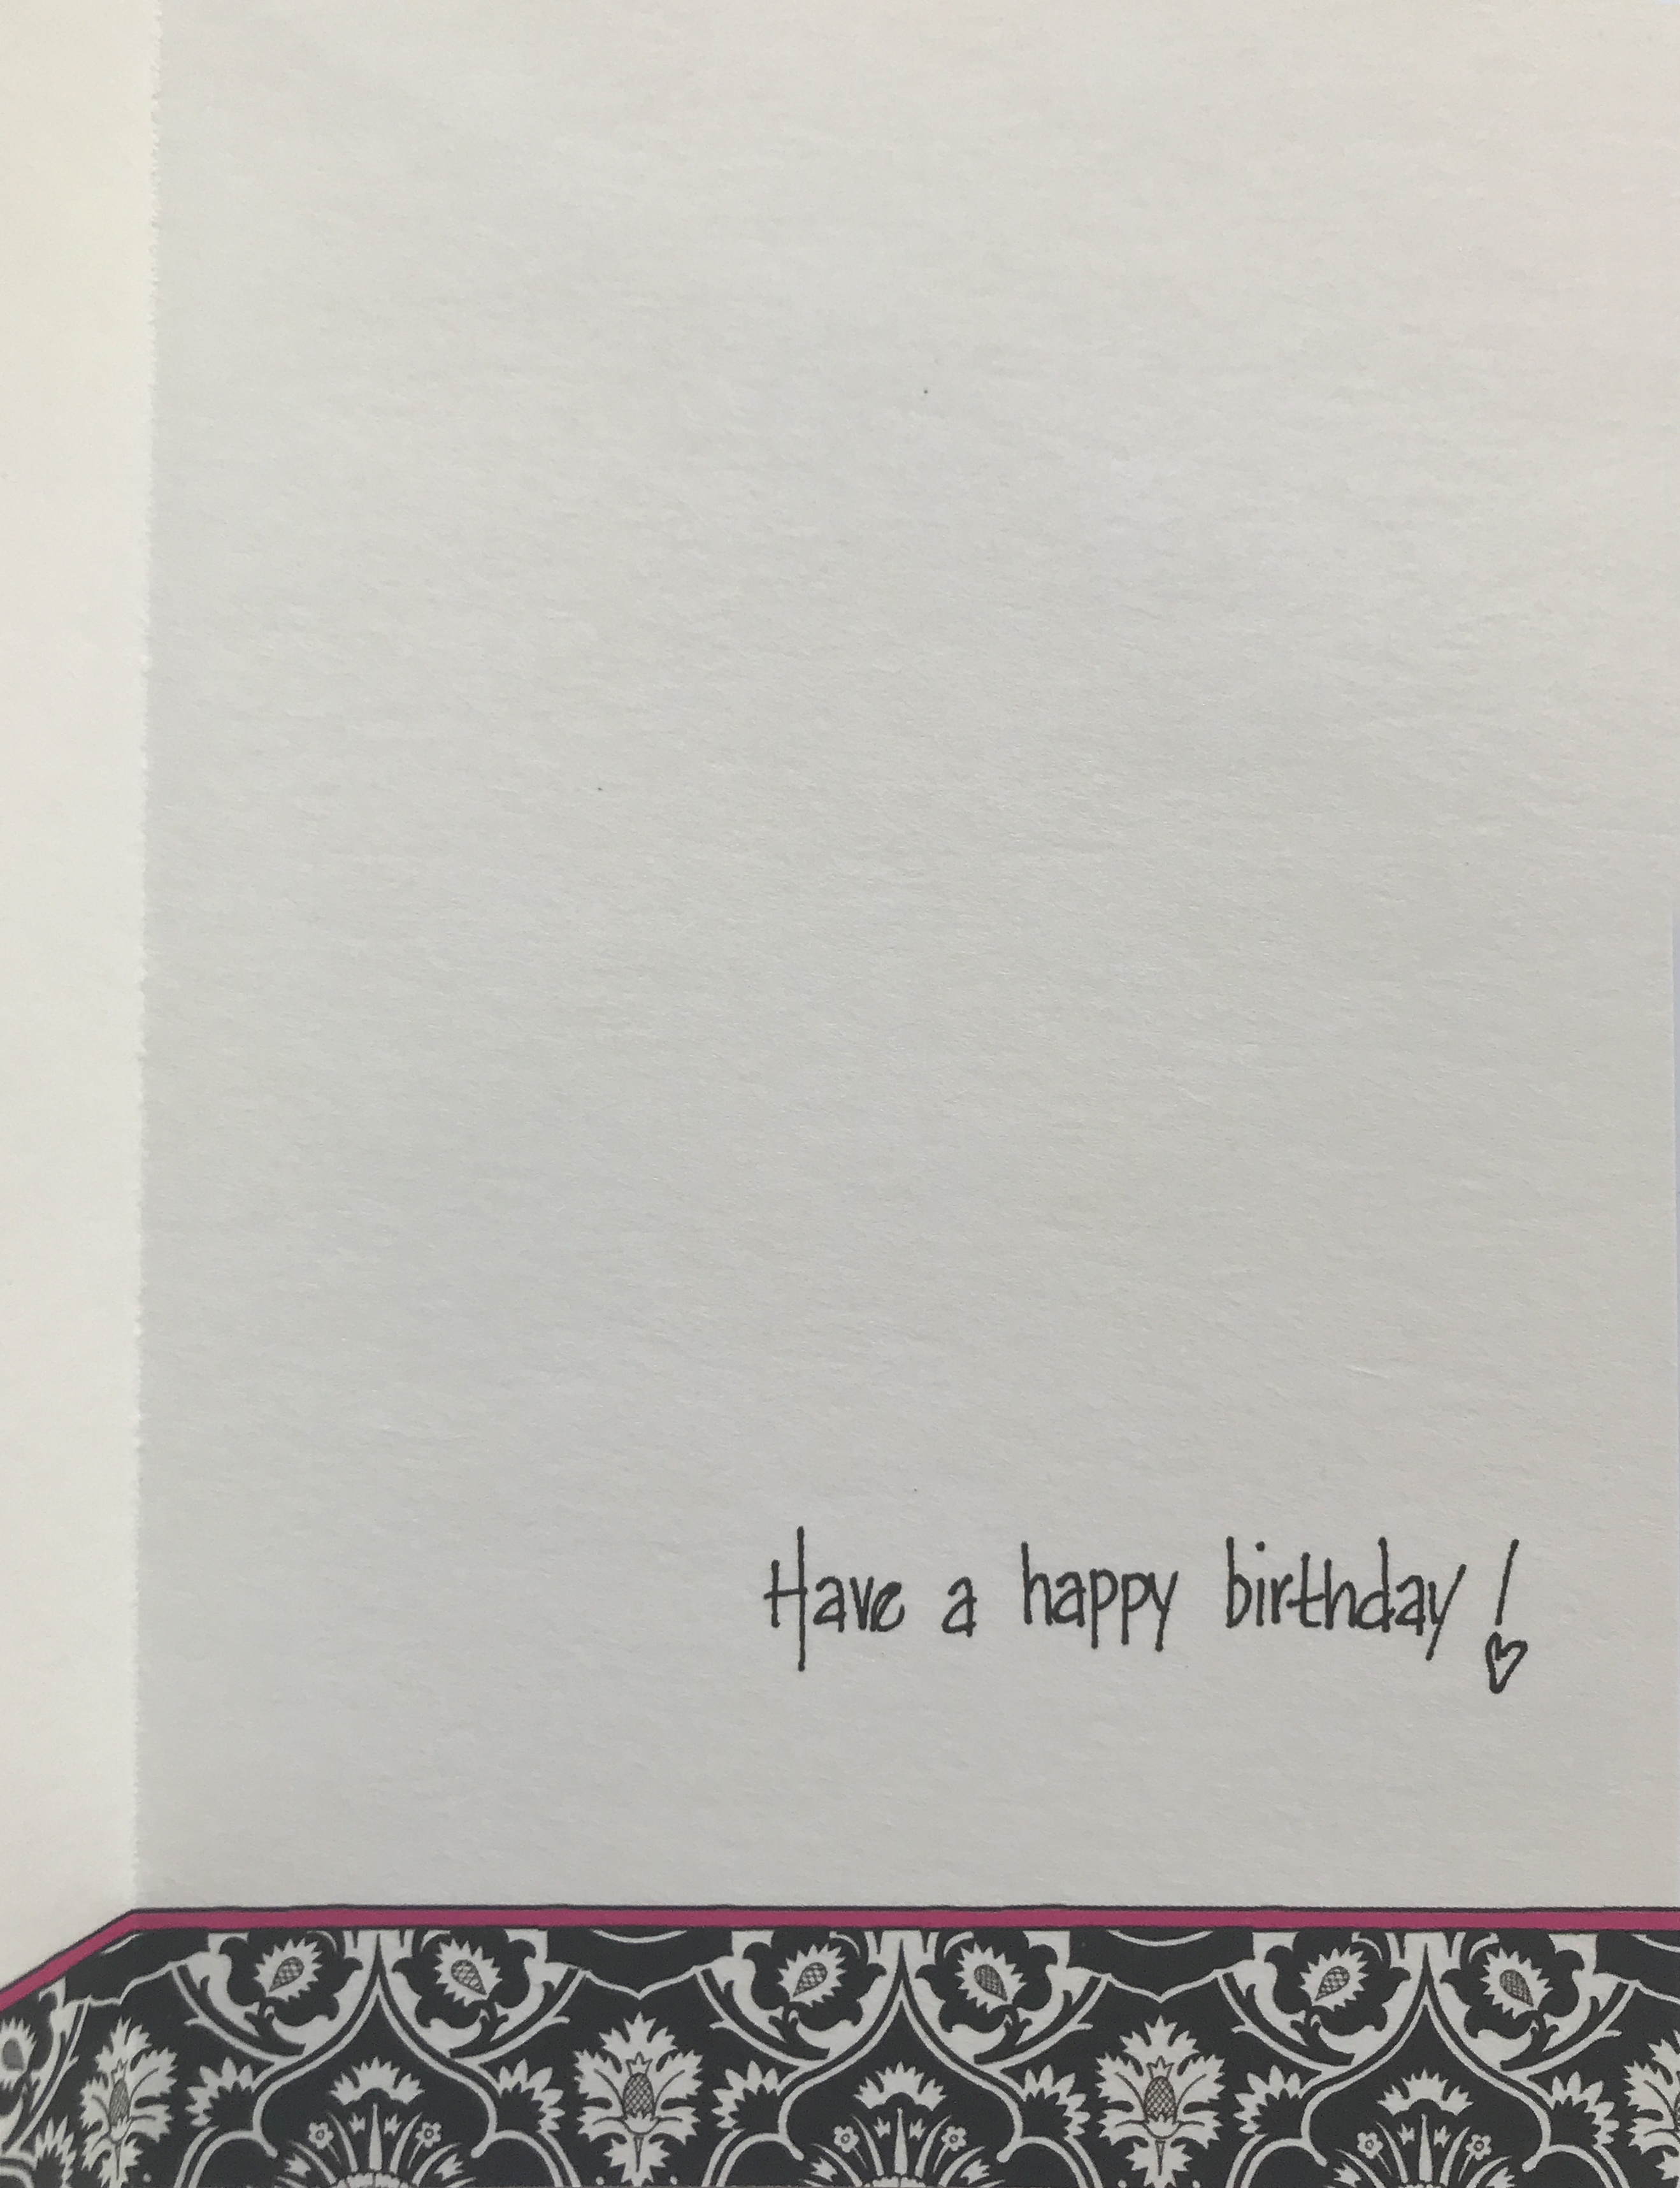 Have a happy birthday!